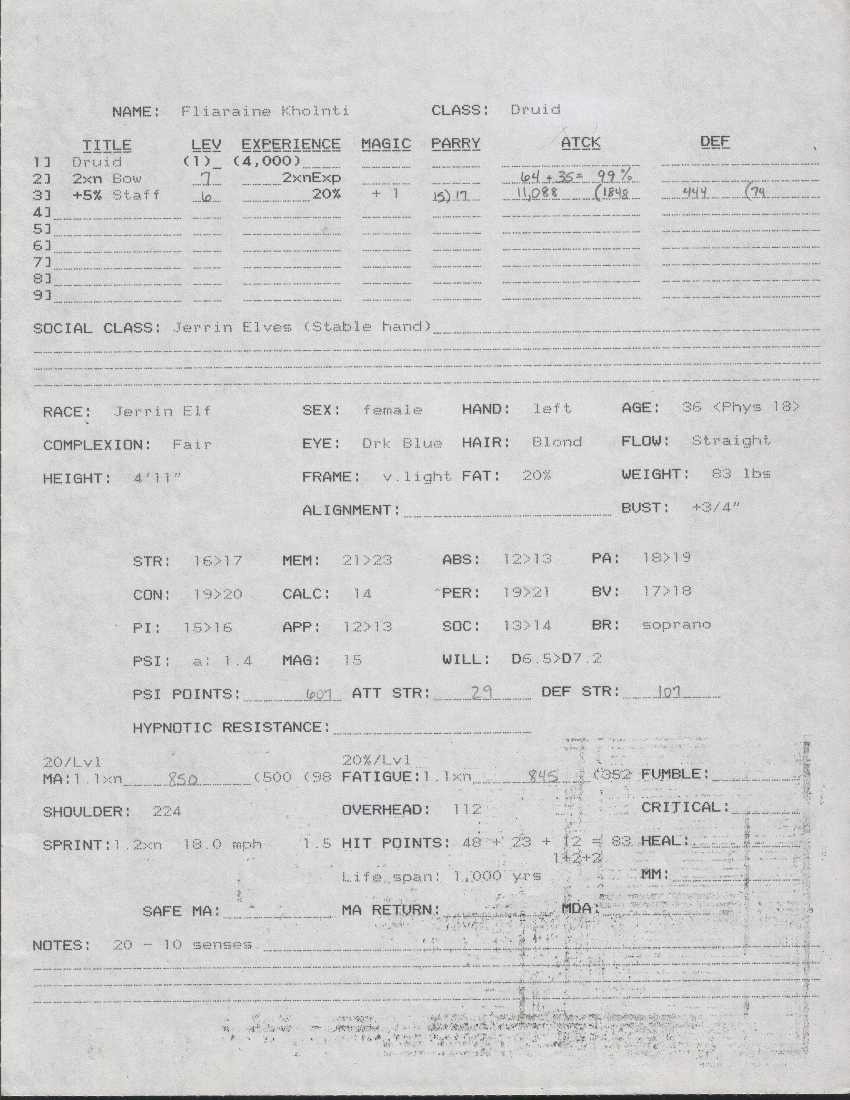 NAME: Fliaraine Kholnti CLASS: Druid
TITLE LEV EXPERIENCE MAGIC PARRY ATCK DEF
1] Druid (1) (4,000)
2] 2xn Bow 7 2xnExp 64 + 35= 99%
3] +5% Staff 6 20% + 1 15) 17 11,088 (1848 444 (74
4]
5]
6]
7]
8]
9]
SOCIAL CLASS: Jerrin Elves (Stable hand)
RACE: Jerrin Elf SEX: female HAND: left AGE: 36 <Phys 18>
COMPLEXION: Fair EYE: Drk Blue HAIR: Blond FLOW: Straight
HEIGHT: 4'11" FRAME: v.light FAT: 20% WEIGHT: 83 lbs
ALIGNMENT: BUST: +3/4"
STR: 16>17 MEM: 21>23 ABS: 12>13 PA: 18>19
CON: 19>20 CALC: 14 PER: 19>21 BV: 17>18
PI: 15>16 APP: 12>13 SOC: 13>14 BR: soprano
PSI: a: 1.4 MAG: 15 WILL: D6.5>D7.2
PSI POINTS: 607 ATT STR: 29 DEF STR: 107
HYPNOTIC RESISTANCE:
20/Lvl 20%/Lvl
MA:1.1xn 850 (500 (98 FATIGUE:1.1xn 845 (352 FUMBLE:
SHOULDER: 224 OVERHEAD: 112 CRITICAL:
SPRINT:1.2xn 18.0 mph 1.5 HIT POINTS: 48 + 23 + 12 = 83 HEAL:
1+2+2
Life span: 1,000 yrs MM:
SAFE MA: MA RETURN: MDA:
NOTES: 20 - 10 senses